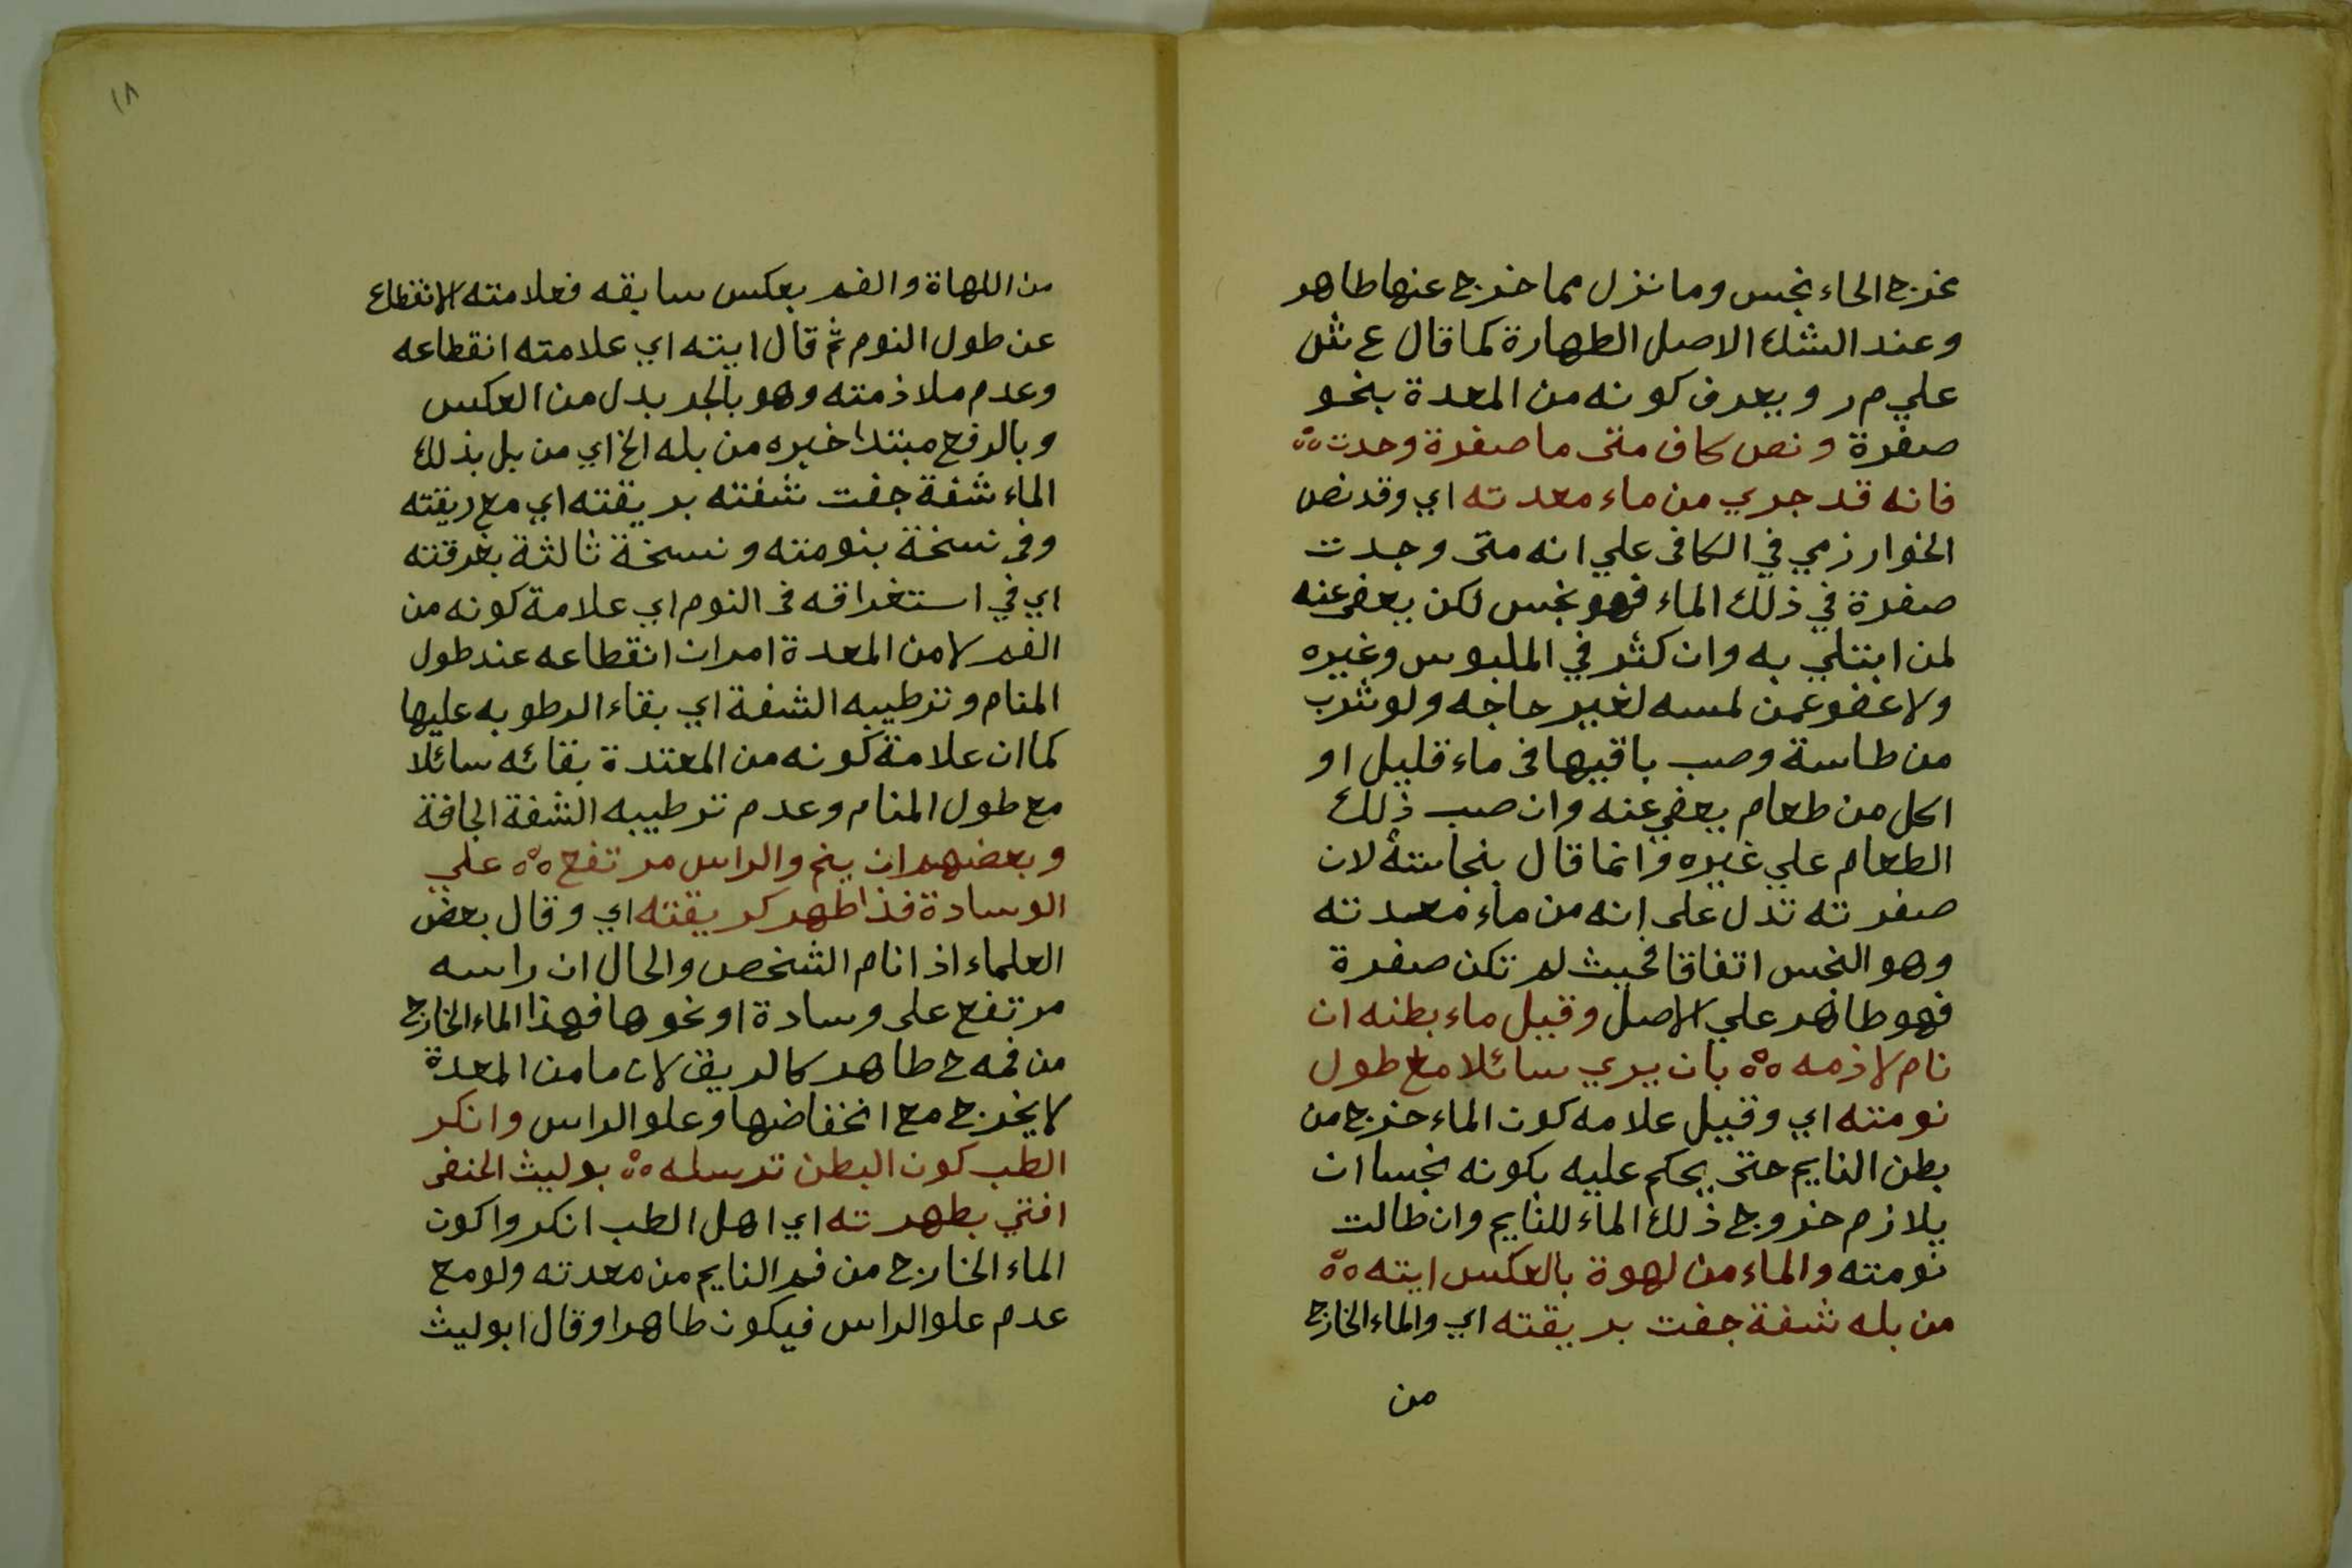 مخرج الحاء نجس وما نزل مما خرج عنها طاهر
وعند الشك الاصل الطهارة كما قال ع ش
علي م ر ويعرف كونه من المعدة بنحو
صفرة ونص كاف متى ما صفرة وجدت ٥٥
فانه قد جري من ماء معدته اي وقد نص
الخوارزمي في الكافى علي انه متى وجدت
صفرة في ذلك الماء فهو نجس لكن يعفى عنه
لمن ابتلي به وان كثر في الملبوس وغيره
ولا عفو عمن لمسه لغير حاجه ولو شرب
من طاسة وصب باقيها فى ماء قليل او
اكل من طعام يعفي عنه وان صب ذلك
الطعام علي غيره وانما قال بنجاسته لان
صفرته تدل على انه من ماء معدته
وهو النجس اتفاقا فحيث لم تكن صفرة
فهو طاهر علي الاصل وقيل ماء بطنه ان
نام لازمه ٥٥ بان يري سائلا مع طول
نومته اي وقيل علامه كون الماء خرج من
بطن النايم حتى يحكم عليه بكونه نجسا ان
يلازم خروج ذلك الماء للنايم وان طالت
نومته والماء من لهوة بالعكس ايته ٥٥
من بله شفة جفت بريقته اي والماء الخارج
من
١٨
من اللهاة والفم بعكس سابقه فعلامته الانقطاع
عن طول النوم ثم قال ايته اي علامته انقطاعه
وعدم ملازمته وهو بالجر بدل من العكس
وبالرفع مبتدا خبره من بله الخ اي من بل بذلك
الماء شفة جفت شفته بريقته اي مع ريقته
وفى نسخة بنومته ونسخة ثالثة بغرقته
اي في استغراقه فى النوم اي علامة كونه من
الفم لا من المعدة امران انقطاعه عند طول
المنام وترطيبه الشفة اي بقاء الرطوبه عليها
كما ان علامة كونه من المعتدة بقائه سائلا
مع طول المنام وعدم ترطيبه الشفة الجافة
وبعضهم ان ينم والراس مرتفع ٥٥ علي
الوسادة فذا طهر كريقته اي وقال بعض
العلماء اذا نام الشخص والحال ان راسه
مرتفع على وسادة او نحوها فهذا الماء الخارج
من فمه ح طاهر كالريق لان ما من المعدة
لا يخرج مع انخفاضها وعلو الراس وانكر
الطب كون البطن ترسله ٥٥ بو ليث الحنفى
افتي بطهرته اي اهل الطب انكروا كون
الماء الخارج من فم النايم من معدته ولو مع
عدم علو الراس فيكون طاهرا وقال ابو ليث